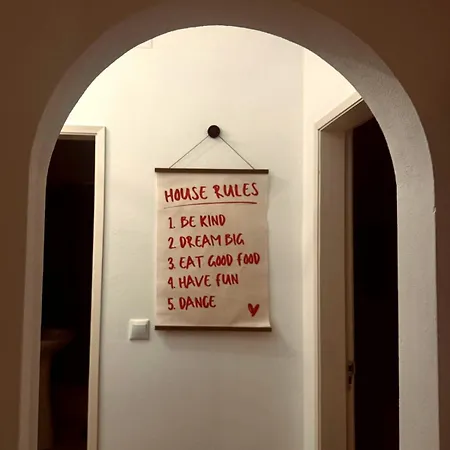 HOUSE RULES
1. BE KIND
2. DREAM BIG
3. EAT GOOD FOOD
4. HAVE FUN
5. DANCE